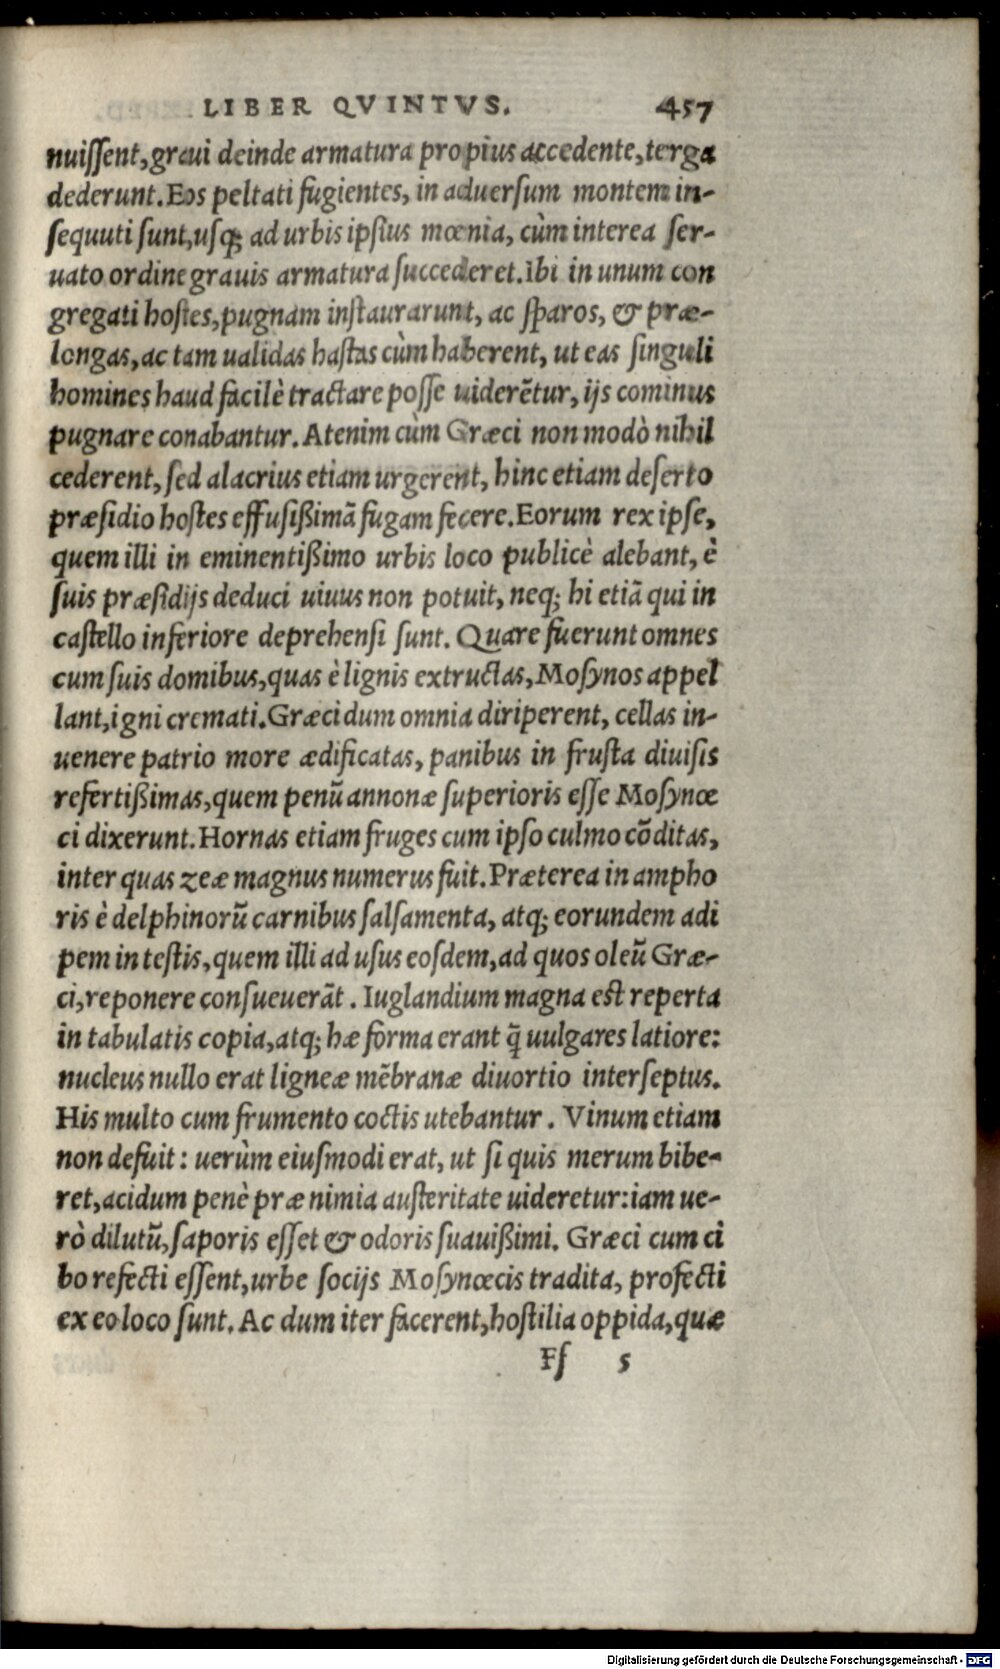 LIBER QVINTVS. 457
nuiſſent, graui deinde armatura propius accedente, terga
dederunt. Eos peltati fugientes, in aduerſum montem in-
ſequuti ſunt, uſq; ad urbis ipſius mœnia, cùm interea ſer-
uato ordine grauis armatura ſuccederet. Ibi in unum con
gregati hoſtes, pugnam inſtaurarunt, ac ſparos, & præ-
longas, ac tam ualidas haſtas cùm haberent, ut eas ſinguli
homines haud facilè tractare poſſe uiderẽtur, ijs cominus
pugnare conabantur. Atenim cùm Græci non modò nihil
cederent, ſed alacrius etiam urgerent, hinc etiam deſerto
præſidio hoſtes effuſißimã fugam fecere. Eorum rex ipſe,
quem illi in eminentißimo urbis loco publicè alebant, è
ſuis præſidijs deduci uiuus non potuit, neq; hi etiã qui in
caſtello inferiore deprehenſi ſunt. Quare fuerunt omnes
cum ſuis domibus, quas è lignis extructas, Moſynos appel
lant, igni cremati. Græci dum omnia diriperent, cellas in-
uenere patrio more ædificatas, panibus in fruſta diuiſis
refertißimas, quem penũ annonæ ſuperioris eſſe Moſynœ
ci dixerunt. Hornas etiam fruges cum ipſo culmo cõditas,
inter quas zeæ magnus numerus fuit. Præterea in ampho
ris è delphinorũ carnibus ſalſamenta, atq; eorundem adi
pem in teſtis, quem illi ad uſus eoſdem, ad quos oleũ Græ-
ci, reponere conſueuerãt. Iuglandium magna eſt reperta
in tabulatis copia, atq; hæ forma erant q̃ uulgares latiore:
nucleus nullo erat ligneæ mẽbranæ diuortio interſeptus.
His multo cum frumento coctis utebantur. Vinum etiam
non defuit: uerùm eiuſmodi erat, ut ſi quis merum bibe-
ret, acidum penè præ nimia auſteritate uideretur: iam ue-
rò dilutũ, ſaporis eſſet & odoris ſuauißimi. Græci cum ci
bo refecti eſſent, urbe ſocijs Moſynœcis tradita, profecti
ex eo loco ſunt. Ac dum iter facerent, hoſtilia oppida, quæ
Ff 5
Digitalisierung gefördert durch die Deutsche Forschungsgemeinschaft - DFG